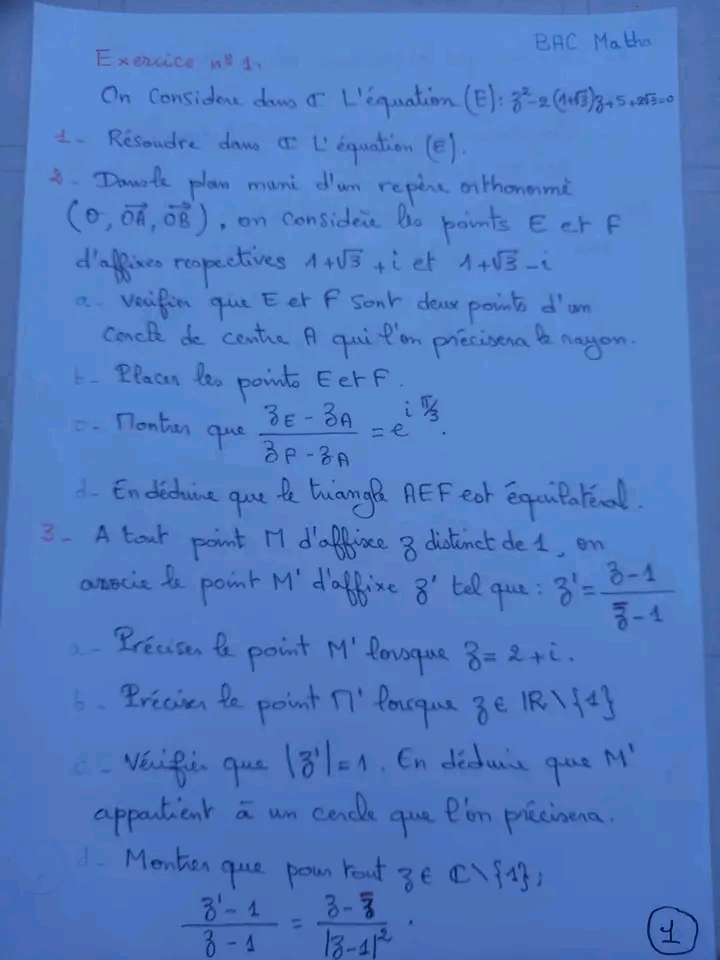 BAC Maths
Exercice n° 1.
On Considère dans ℂ L'équation (E): z²-2(1+√3)z+5+2√3=0
1- Résoudre dans ℂ L'équation (E).
2- Dans le plan muni d'un repère orthonormé
(O, OA→, OB→), on considère les points E et F
d'affixes respectives 1+√3+i et 1+√3-i
a- Vérifier que E et F sont deux points d'un
cercle de centre A qui l'on précisera le rayon.
b- Placer les points E et F.
c- Montrer que (zE - zA)/(zF - zA) = e^(iπ/3).
d- En déduire que le triangle AEF est équilatéral.
3- A tout point M d'affixe z distinct de 1, on
associe le point M' d'affixe z' tel que: z' = (z-1)/(z̄-1)
a- Préciser le point M' lorsque z = 2+i.
b- Préciser le point M' lorsque z ∈ IR\{1}
c- Vérifier que |z'|=1. En déduire que M'
appartient à un cercle que l'on précisera.
d- Montrer que pour tout z ∈ ℂ\{1};
(z'-1)/(z-1) = (z-z̄)/|z-1|².
1